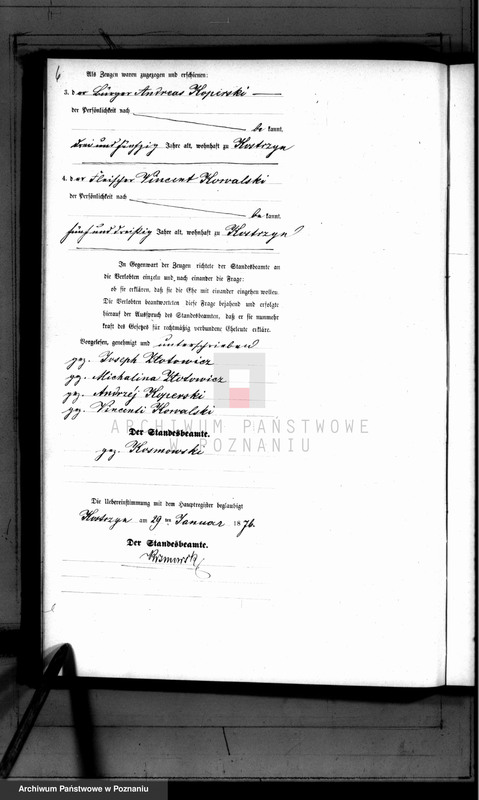 6
Als Zeugen waren zugezogen und erschienen:
3. der Bürger Andreas Kopirski
der Persönlichkeit nach
bekannt,
drei und fünfzig Jahre alt, wohnhaft zu Kostrzyn
4. der Fleischer Vincent Kowalski
der Persönlichkeit nach
bekannt,
fünf und dreißig Jahre alt, wohnhaft zu Kostrzyn
In Gegenwart der Zeugen richtete der Standesbeamte an
die Verlobten einzeln und nach einander die Frage:
ob sie erklären, daß sie die Ehe mit einander eingehen wollen.
Die Verlobten beantworteten diese Frage bejahend und erfolgte
hierauf der Ausspruch des Standesbeamten, daß er sie nunmehr
kraft des Gesetzes für rechtmäßig verbundene Eheleute erkläre.
Vorgelesen, genehmigt und unterschrieben
gez. Joseph Złotowicz
gez. Michalina Złotowicz
gez. Andrzéj Koperski
gez. Vincenti Kowalski
ARCHIWUM PAŃSTWOWE
W POZNANIU
Der Standesbeamte.
gez. Kosmowski
Die Uebereinstimmung mit dem Hauptregister beglaubigt
Kostrzyn am 29 ten Januar 1876.
Der Standesbeamte.
Kosmowski
Archiwum Państwowe w Poznaniu